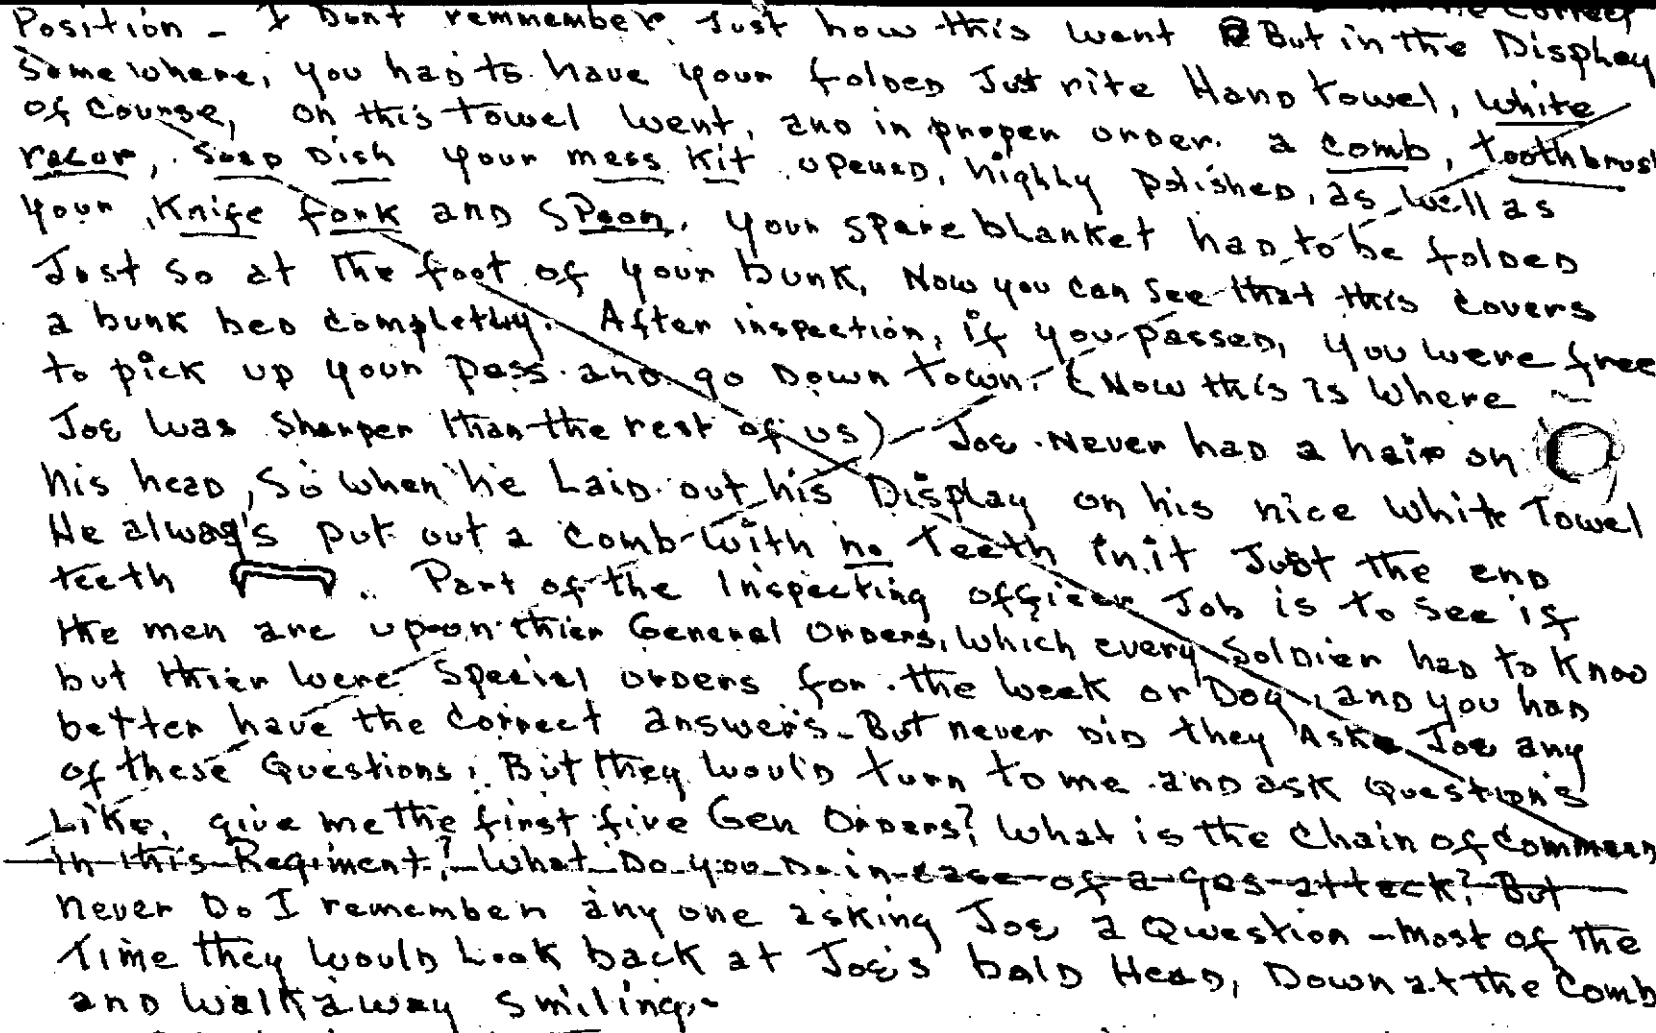 the Correct
Position - I Dont remmember Just how this went But in the Display
Somewhere, you had to have your folded Just rite Hand towel, white
of Course, on this towel went, and in proper order. a comb, toothbrush
razor, Soap Dish your mess Kit opened, highly polished, as well as
your, Knife fork and Spoon, your spare blanket had to be folded
Just so at the foot of your bunk, Now you can see that this covers
a bunk bed completly. After inspection, if you passed, you were free
to pick up your pass and go Down town. (Now this is where
Joe was sharper than the rest of us) Joe Never had a hair on
his head, So when he Laid out his Display on his nice white Towel
He alway's put out a comb with no Teeth in it Just the end
teeth .. Part of the Inspecting officer Job is to see if
the men are up on thier General Orders, which every Soldier had to Know
but thier were Special orders for the week or Day, and you had
better have the correct answers - But never did they Ask Joe any
of these Questions, But they would turn to me and ask Question's
Like, give me the first five Gen Orders? What is the Chain of Command
in this Regiment? What Do you Do in case of a gas attack? But
never Do I remember any one asking Joe a Question - Most of the
Time they would Look back at Joe's bald Head, Down at the Comb
and walk away smiling.